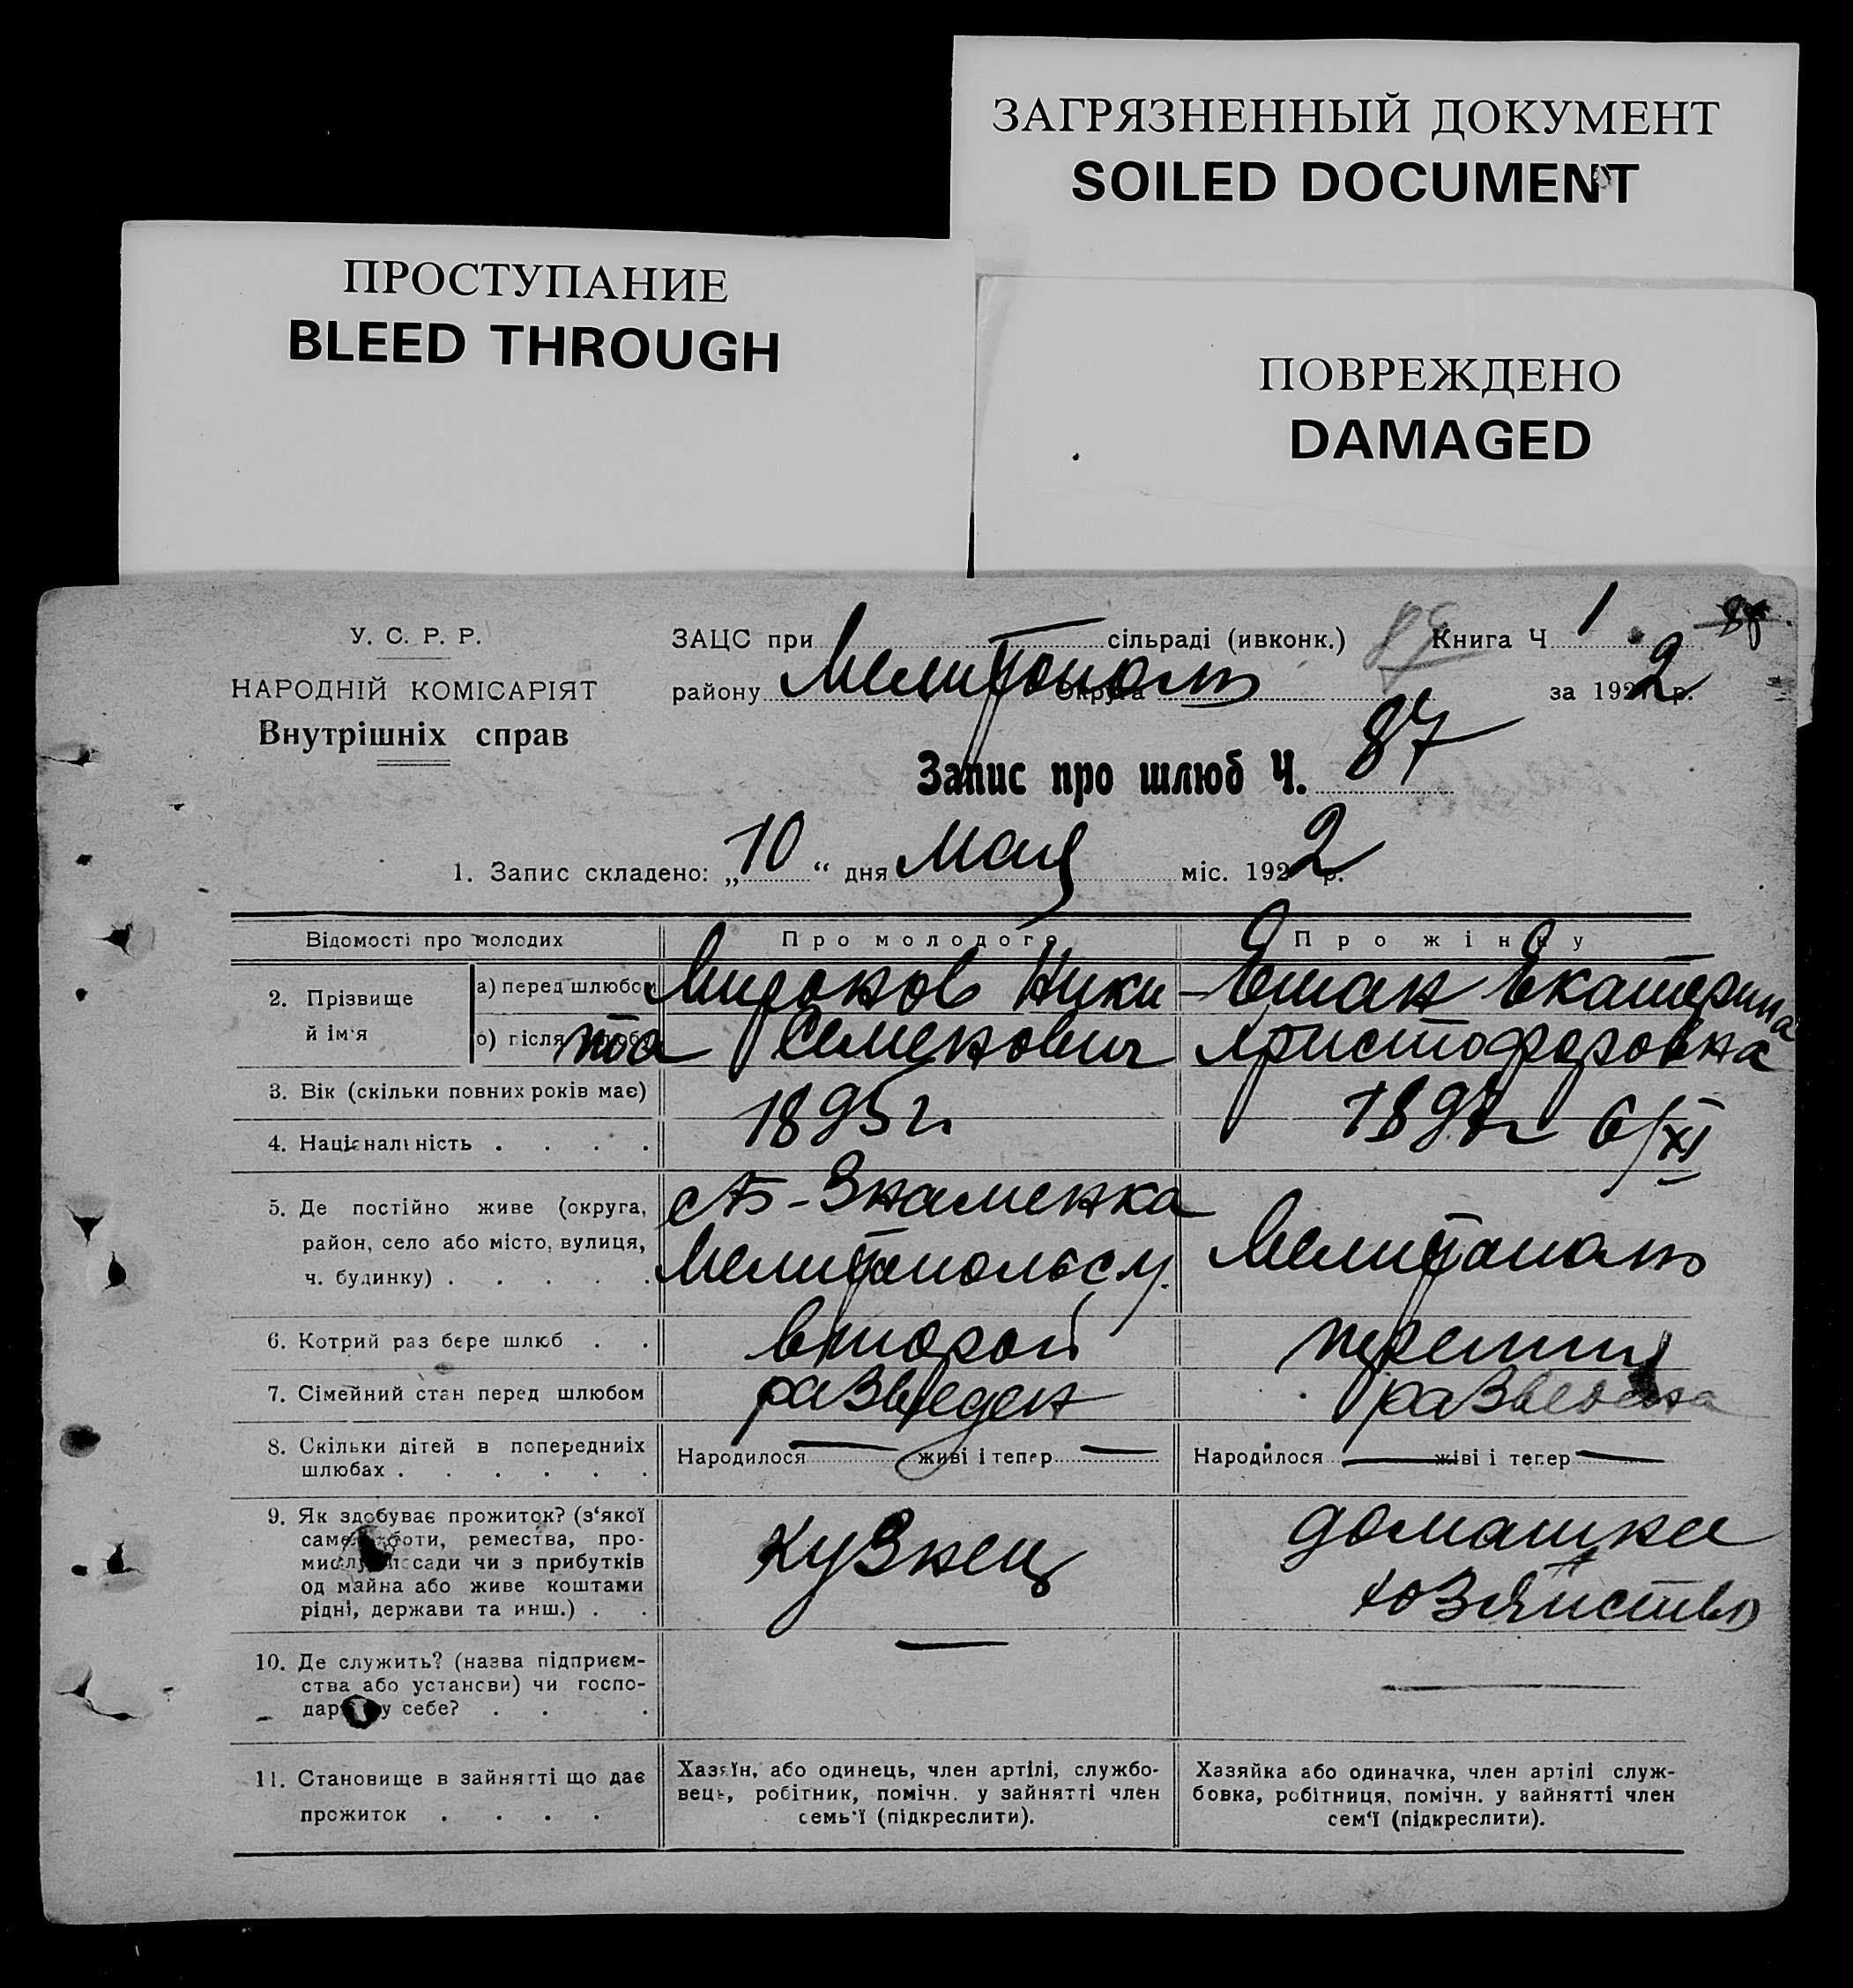 ЗАГРЯЗНЕННЫЙ ДОКУМЕНТ
SOILED DOCUMENT
ПРОСТУПАНИЕ
BLEED THROUGH
ПОВРЕЖДЕНО
DAMAGED
У. С. Р. Р.
НАРОДНІЙ КОМІСАРІЯТ
Внутрішніх справ
ЗАЦС при сільраді (ивконк.) Книга Ч 1
району Мелитополь Округа за 1922 р.
Запис про шлюб Ч. 87
1. Запис складено: „10“ дня Мая міс. 1922 р.
Відомості про молодих Про молодого Про жінку
2. Прізвище й ім'я
а) перед шлюбом Миронов Ники- Екатерина
о) після та Семенович Христофоровна
3. Вік (скільки повних років має) 1895 г. 1897 г 6/XI
4. Національність
5. Де постійно живе (округа, район, село або місто, вулиця, ч. будинку) Знаменка Мелитопольск у. Мелитополь
6. Котрий раз бере шлюб второй
7. Сімейний стан перед шлюбом разведен разведена
8. Скільки дітей в попередниіх шлюбах Народилося — живі і тепер — Народилося — живі і тепер —
9. Як здобуває прожиток? (з'якої саме роботи, ремества, промислу, посади чи з прибутків од майна або живе коштами рідні, держави та инш.) Кузнец домашнее хозяйство
10. Де служить? (назва підприємства або устансви) чи господарює у себе? — —
11. Становище в зайнятті що дає прожиток
Хазяїн, або одинець, член артілі, службовець, робітник, помічн. у зайнятті член семь'ї (підкреслити).
Хазяйка або одиначка, член артілі службовка, робітниця, помічн. у зайнятті член сем'ї (підкреслити).